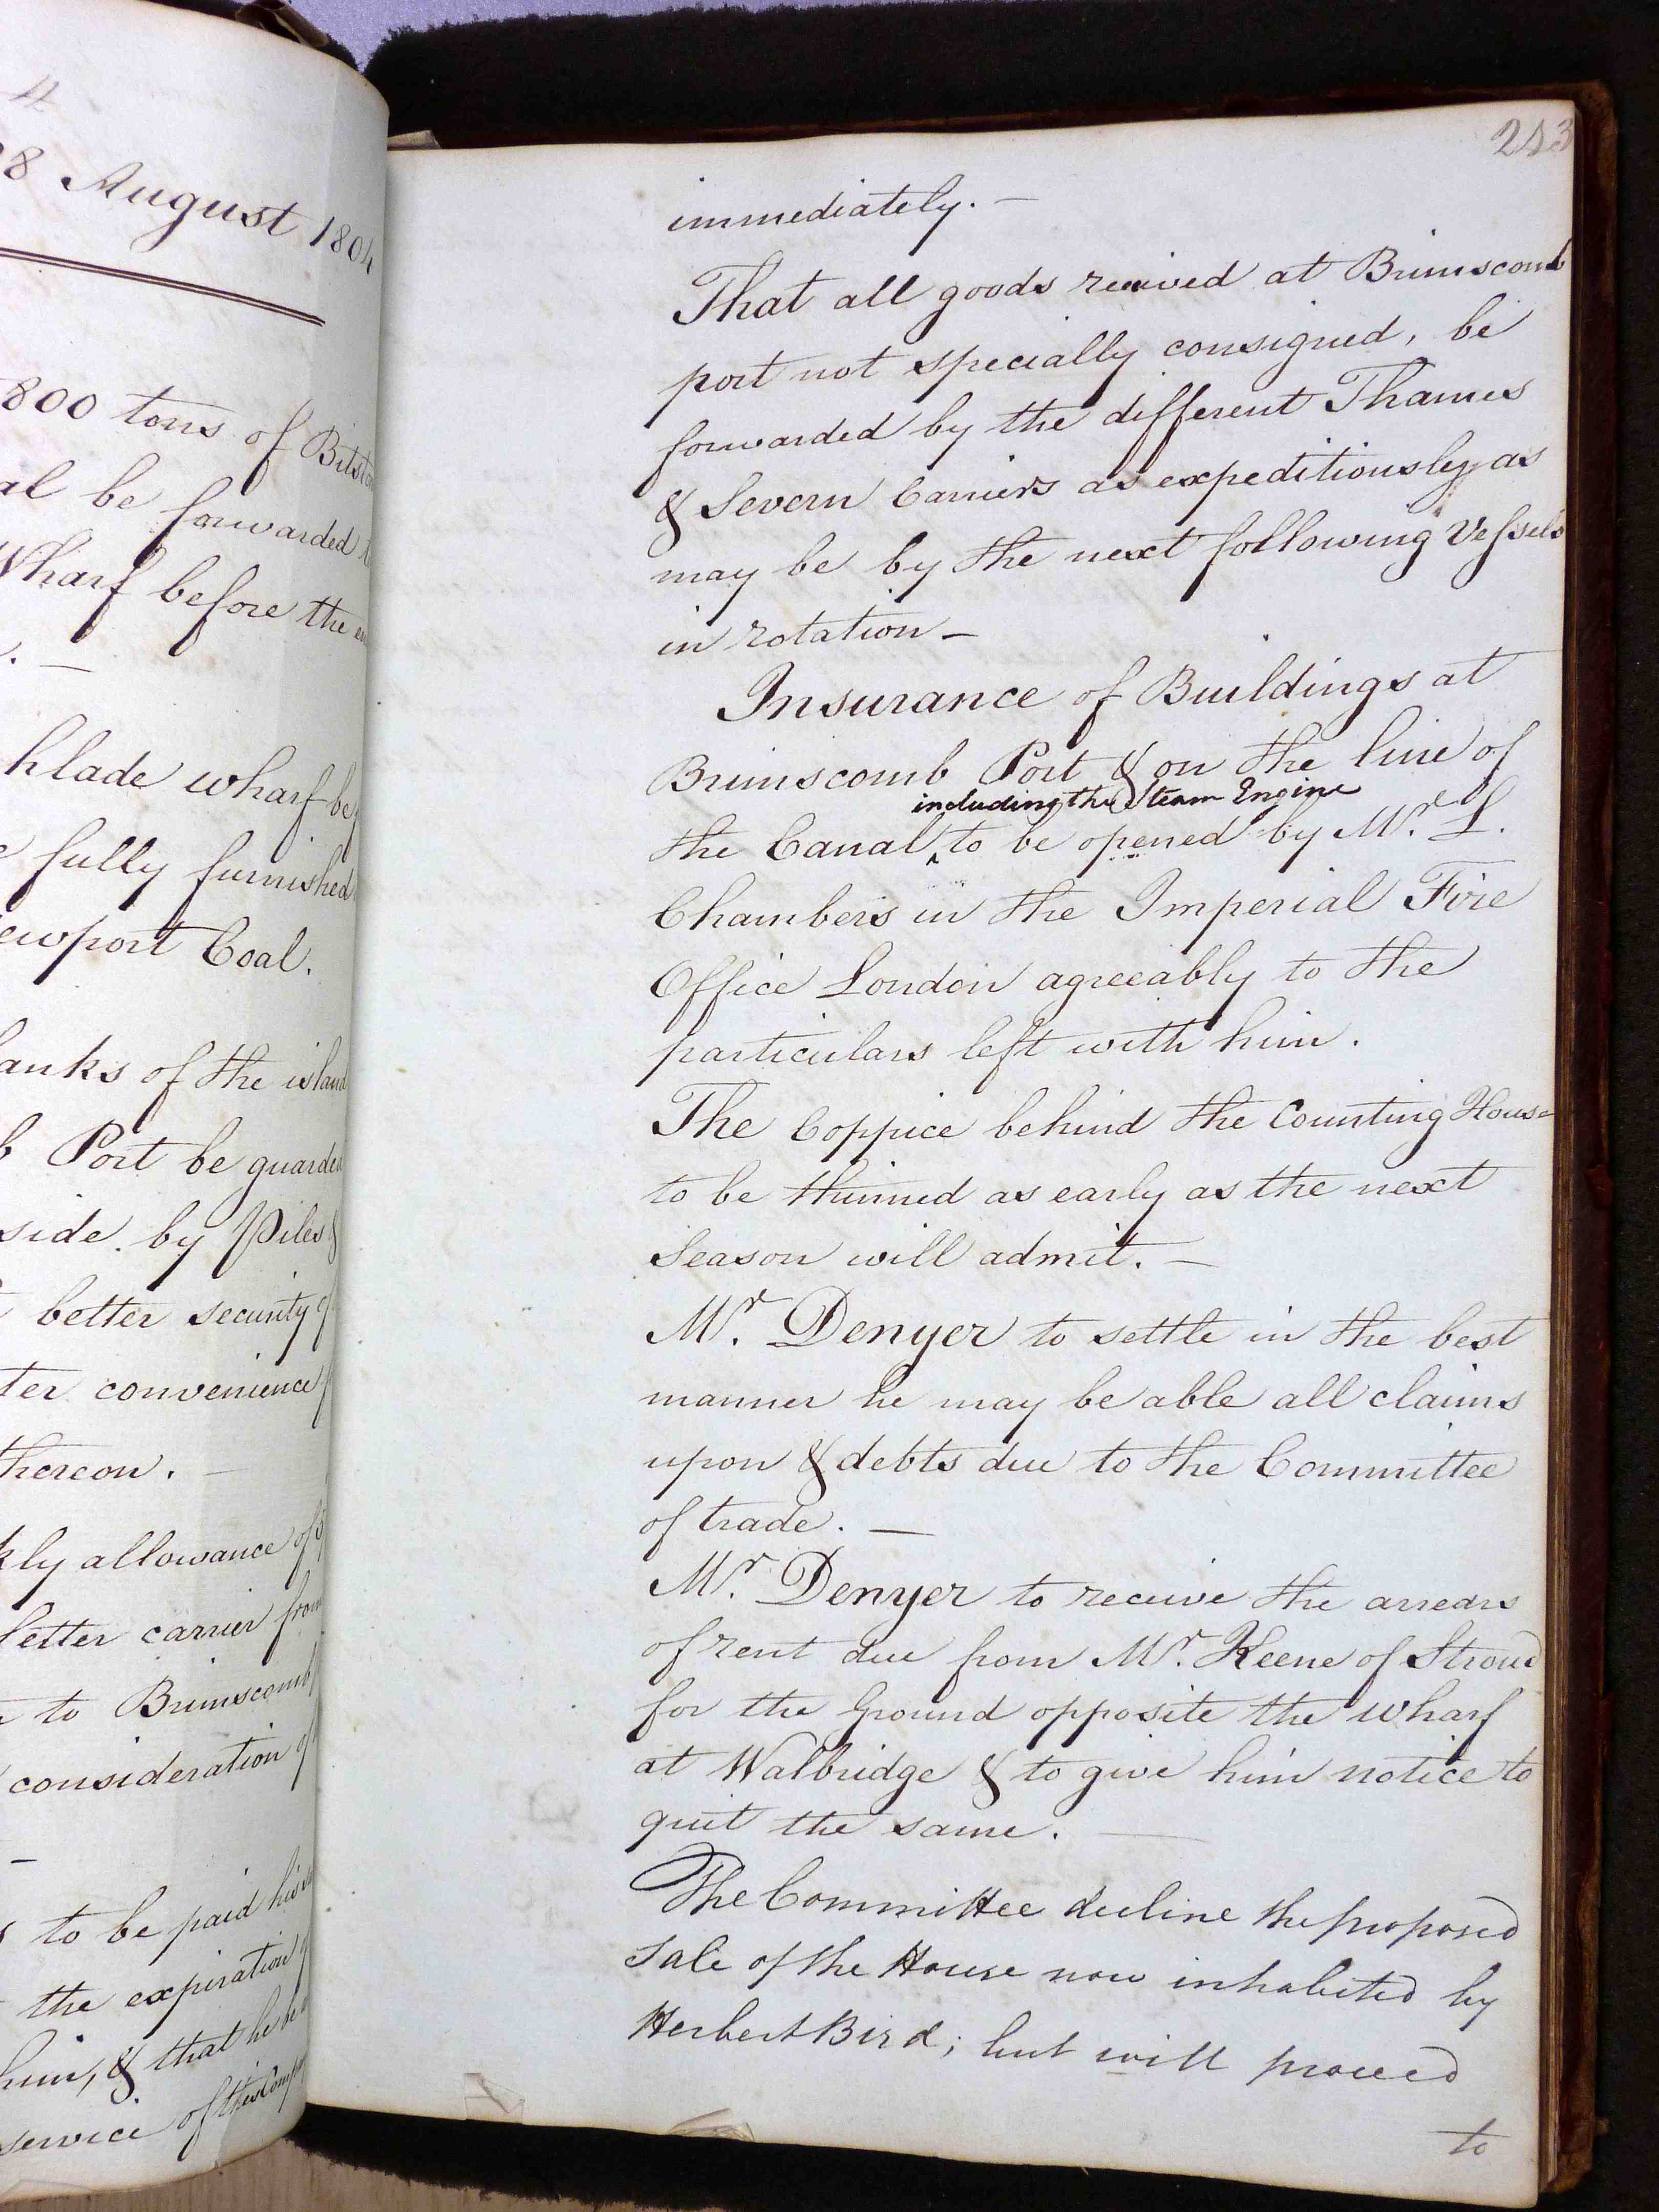 4
28 August 1804
800 tons of
al be forwarded
Wharf before the
hlade wharf be
fully furnished
ewport Coal.
anks of the island
b Port be guarded
side by Piles &
better security of
ter convenience
thereon. —
kly allowance of
letter carrier from
to Brimscomb
consideration of
to be paid his
the expiration
him, & that he be
service of this Comp
243
immediately. —
That all goods received at Brimscomb
port not specially consigned, be
forwarded by the different Thames
& Severn Carriers as expeditiously as
may be by the next following Vessels
in rotation —
Insurance of Buildings at
Brimscomb Port & on the line of
including the Steam Engine
the Canal ^ to be opened by Mr. L.
Chambers in the Imperial Fire
Office London agreeably to the
particulars left with him.
The Coppice behind the Counting House
to be thinned as early as the next
Season will admit. —
Mr. Denyer to settle in the best
manner he may be able all claims
upon & debts due to the Committee
of trade. —
Mr. Denyer to receive the arrears
of rent due from Mr. Keene of Stroud
for the Ground opposite the wharf
at Walbridge & to give him notice to
quit the same. —
The Committee decline the proposed
Sale of the House now inhabited by
Herbert Bird; but will proceed
to